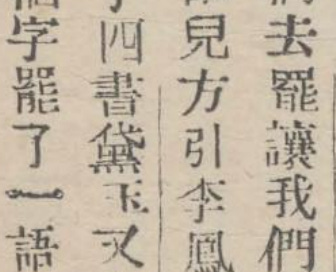 去罷讓我們
兒方引李鳳
四書黛玉又
字罷了一語